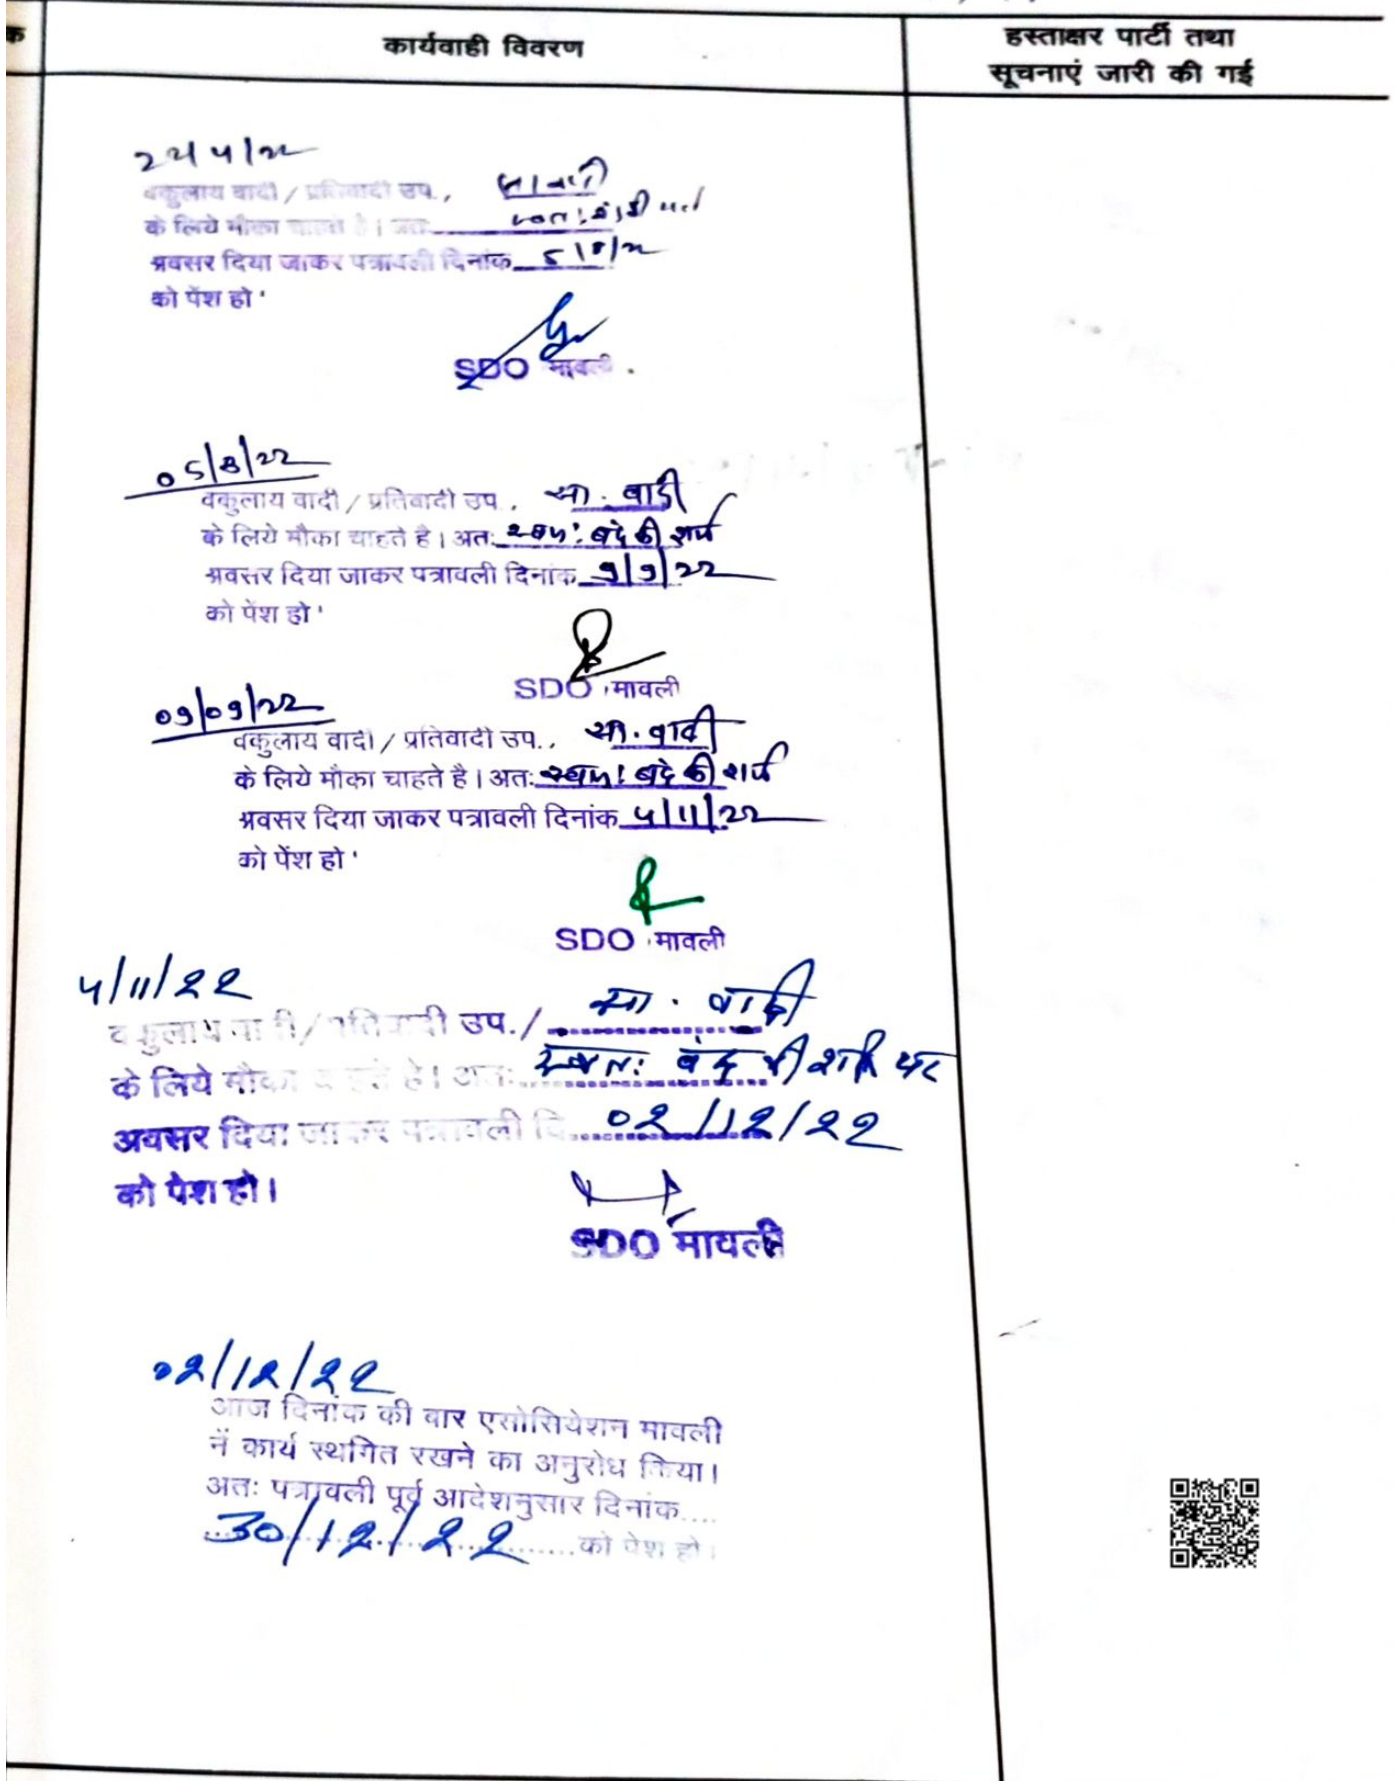 कार्यवाही विवरण
हस्ताक्षर पार्टी तथा
सूचनाएं जारी की गई
वकुलाय वादी / प्रतिवादी उप.,
के लिये मौका चाहते है। अतः
अवसर दिया जाकर पत्रावली दिनांक
को पेंश हो '
SDO मावली
05/8/22
वकुलाय वादी / प्रतिवादी उप., सा. वादी
के लिये मौका चाहते है। अतः स्वतः बंद की शर्त
अवसर दिया जाकर पत्रावली दिनांक 9/9/22
को पेंश हो '
SDO मावली
09/09/22
वकुलाय वादी / प्रतिवादी उप., सा. वादी
के लिये मौका चाहते है। अतः स्वतः बंद की शर्त
अवसर दिया जाकर पत्रावली दिनांक 4/11/22
को पेंश हो '
SDO मावली
4/11/22
वकुलाय वादी / प्रतिवादी उप./ सा. वादी
के लिये मौका चाहते है। अतः स्वतः बंद की शर्त पर
अवसर दिया जाकर पत्रावली दि.... 02/12/22
को पेश हो।
SDO मावली
02/12/22
आज दिनांक की बार एसोसियेशन मावली
नें कार्य स्थगित रखने का अनुरोध किया।
अतः पत्रावली पूर्व आदेशनुसार दिनांक....
30/12/22 को पेश हो।